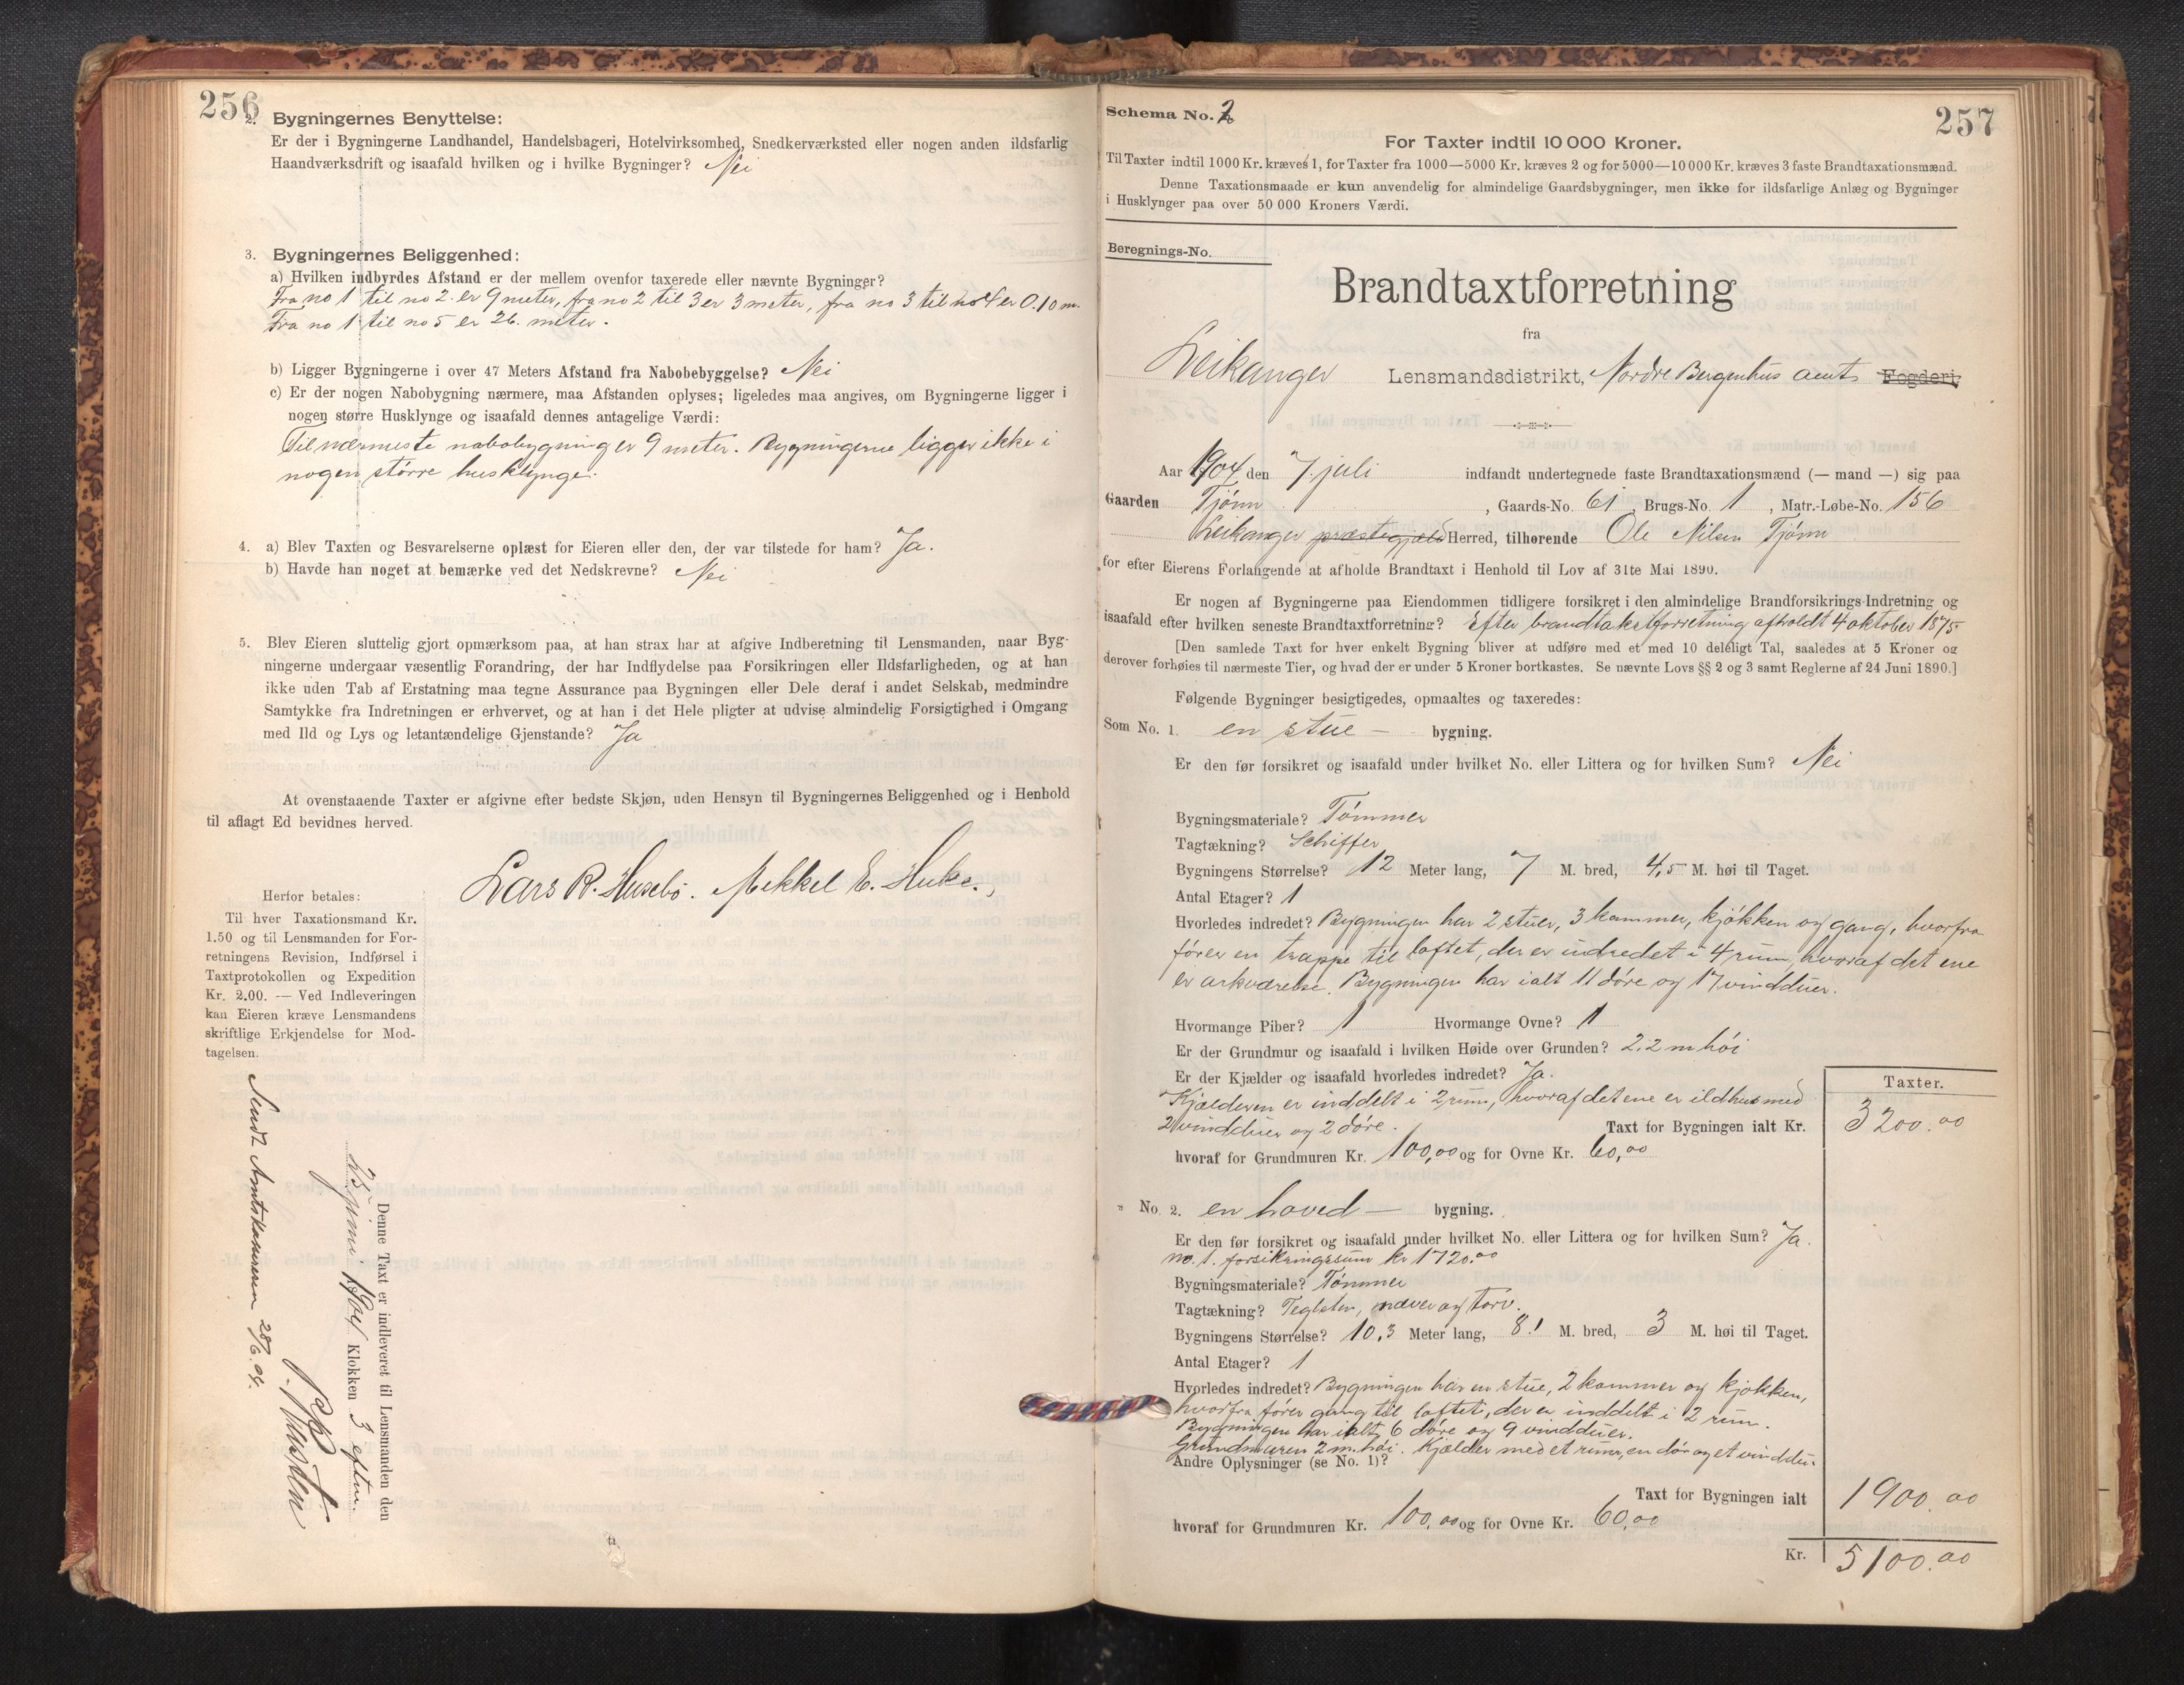 256
2. Bygningernes Benyttelse:
Er der i Bygningerne Landhandel, Handelsbageri, Hotelvirksomhed, Snedkerværksted eller nogen anden ildsfarlig
Haandværksdrift og isaafald hvilken og i hvilke Bygninger? Nei
3. Bygningernes Beliggenhed:
a) Hvilken indbyrdes Afstand er der mellem ovenfor taxerede eller nævnte Bygninger?
Fra no 1 til no 2 er 9 meter, fra no 2 til 3 er 3 meter, fra no 3 til no 4 er 0.10 m.
Fra no 1 til no 5 er 26. meter.
b) Ligger Bygningerne i over 47 Meters Afstand fra Nabobebyggelse? Nei
c) Er der nogen Nabobygning nærmere, maa Afstanden oplyses; ligeledes maa angives, om Bygningerne ligger i
nogen større Husklynge og isaafald dennes antagelige Værdi:
Til nærmeste nabobygning er 9 meter. Bygningerne ligger ikke i
nogen større husklynge.
4. a) Blev Taxten og Besvarelserne oplæst for Eieren eller den, der var tilstede for ham? Ja.
b) Havde han noget at bemærke ved det Nedskrevne? Nei
5. Blev Eieren sluttelig gjort opmærksom paa, at han strax har at afgive Indberetning til Lensmanden, naar Byg-
ningerne undergaar væsentlig Forandring, der har Indflydelse paa Forsikringen eller Ildsfarligheden, og at han
ikke uden Tab af Erstatning maa tegne Assurance paa Bygningen eller Dele deraf i andet Selskab, medmindre
Samtykke fra Indretningen er erhvervet, og at han i det Hele pligter at udvise almindelig Forsigtighed i Omgang
med Ild og Lys og letantændelige Gjenstande? Ja
At ovenstaaende Taxter er afgivne efter bedste Skjøn, uden Hensyn til Bygningernes Beliggenhed og i Henhold
til aflagt Ed bevidnes herved.
Lars R. Husebø. Mikkel E. Huke.
Herfor betales:
Til hver Taxationsmand Kr.
1.50 og til Lensmanden for For-
retningens Revision, Indførsel i
Taxtprotokollen og Expedition
Kr. 2.00. — Ved Indleveringen
kan Eieren kræve Lensmandens
skriftlige Erkjendelse for Mod-
tagelsen.
Denne Taxt er indleveret til Lensmanden den
25 juni 1904 Klokken 3 efterm.
Sendt Amtskasseren 28/6. 04.
257
Schema No. 2
For Taxter indtil 10 000 Kroner.
Til Taxter indtil 1000 Kr. kræves 1, for Taxter fra 1000—5000 Kr. kræves 2 og for 5000—10 000 Kr. kræves 3 faste Brandtaxationsmænd.
Denne Taxationsmaade er kun anvendelig for almindelige Gaardsbygninger, men ikke for ildsfarlige Anlæg og Bygninger
i Husklynger paa over 50 000 Kroners Værdi.
Beregnings-No.
Brandtaxtforretning
fra
Leikanger Lensmandsdistrikt, Nordre Bergenhus amt Fogderi.
Aar 1904 den 7. juli indfandt undertegnede faste Brandtaxationsmænd (— mand —) sig paa
Gaarden Tjønn, Gaards-No. 61, Brugs-No. 1, Matr.-Løbe-No. 156
Leikanger præstegjæld Herred, tilhørende Ole Nilsen Tjønn
for efter Eierens Forlangende at afholde Brandtaxt i Henhold til Lov af 31te Mai 1890.
Er nogen af Bygningerne paa Eiendommen tidligere forsikret i den almindelige Brandforsikrings-Indretning og
isaafald efter hvilken seneste Brandtaxtforretning? Efter brandtakstforretning afholdt 4 oktober 1875.
[Den samlede Taxt for hver enkelt Bygning bliver at udføre med et med 10 deleligt Tal, saaledes at 5 Kroner og
derover forhøies til nærmeste Tier, og hvad der er under 5 Kroner bortkastes. Se nævnte Lovs §§ 2 og 3 samt Reglerne af 24 Juni 1890.]
Følgende Bygninger besigtigedes, opmaaltes og taxeredes:
Som No. 1. en stue — bygning.
Er den før forsikret og isaafald under hvilket No. eller Littera og for hvilken Sum? Nei
Bygningsmateriale? Tømmer
Tagtækning? Schiffer
Bygningens Størrelse? 12 Meter lang, 7 M. bred, 4,5 M. høi til Taget.
Antal Etager? 1
Hvorledes indredet? Bygningen har 2 stuer, 3 kammer, kjøkken og gang, hvorfra
fører en trappe til loftet, der er indredet i 4 rum, hvoraf det ene
er arkværelse. Bygningen har ialt 11 døre og 17 vinduer.
Hvormange Piber? 1 Hvormange Ovne? 1
Er der Grundmur og isaafald i hvilken Høide over Grunden? 2,2 m høi
Er der Kjælder og isaafald hvorledes indredet? Ja.
Kjælderen er inddelt i 2 rum, hvoraf det ene er ildhus med
2 vinduer og 2 døre. Taxt for Bygningen ialt Kr.
Taxter.
3200.00
hvoraf for Grundmuren Kr. 100,00 og for Ovne Kr. 60,00
" No. 2. en hoved — bygning.
Er den før forsikret og isaafald under hvilket No. eller Littera og for hvilken Sum? Ja.
no. 1. forsikringssum kr 1720.00
Bygningsmateriale? Tømmer
Tagtækning? Teglsten, næver og torv.
Bygningens Størrelse? 10,3 Meter lang, 8.1 M. bred, 3 M. høi til Taget.
Antal Etager? 1
Hvorledes indredet? Bygningen har en stue, 2 kammer og kjøkken,
hvorfra fører gang til loftet, der er inddelt i 2 rum.
Bygningen har ialt 6 døre og 9 vinduer.
Grundmuren 2 m. høi. Kjælder med et rum, en dør og et vindu.
Andre Oplysninger (se No. 1)?
Taxt for Bygningen ialt 1900.00
hvoraf for Grundmuren Kr. 100,00 og for Ovne Kr. 60,00
Kr. 5100.00